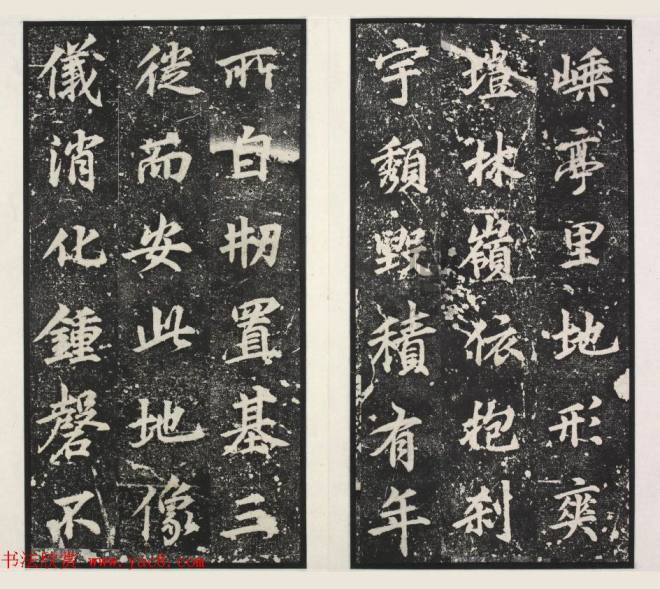 嵊亭里地形爽
塏林嶺依抱刹
宇頹毀積有年
所自刱置基三
徙而安此地像
儀消化鍾磬不
书法欣赏 www.yac8.com